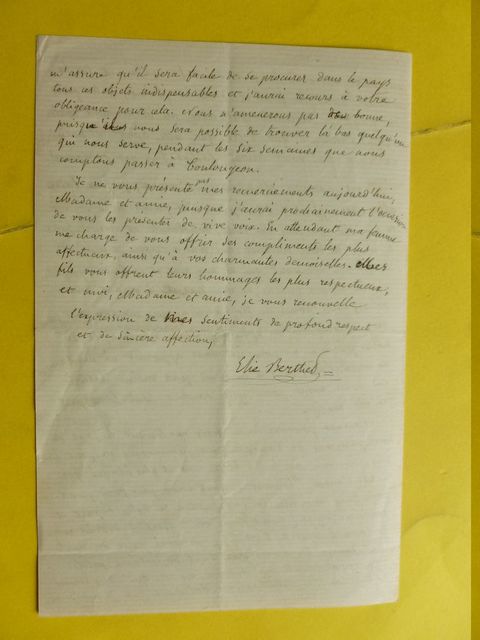 m'assure qu'il sera facile de se procurer dans le pays
tous ces objets indispensables et j'aurai recours à votre
obligeance pour cela. Nous n'amènerons pas bonne,
puisque vous sera possible de trouver là bas quelqu'un
qui nous serve, pendant les six semaines que nous
comptons passer à Coulongeon.
Je ne vous présente pas mes remerciements aujourd'hui,
Madame et amie, puisque j'aurai prochainement l'occasion
de vous les présenter de vive voix. En attendant ma femme
me charge de vous offrir ses compliments les plus
affectueux, ainsi qu'à vos charmantes demoiselles. Mes
fils vous offrent leurs hommages les plus respectueux,
et moi, Madame et amie, je vous renouvelle
l'expression de mes sentiments de profond respect
et de sincère affection,
Elie Berthet